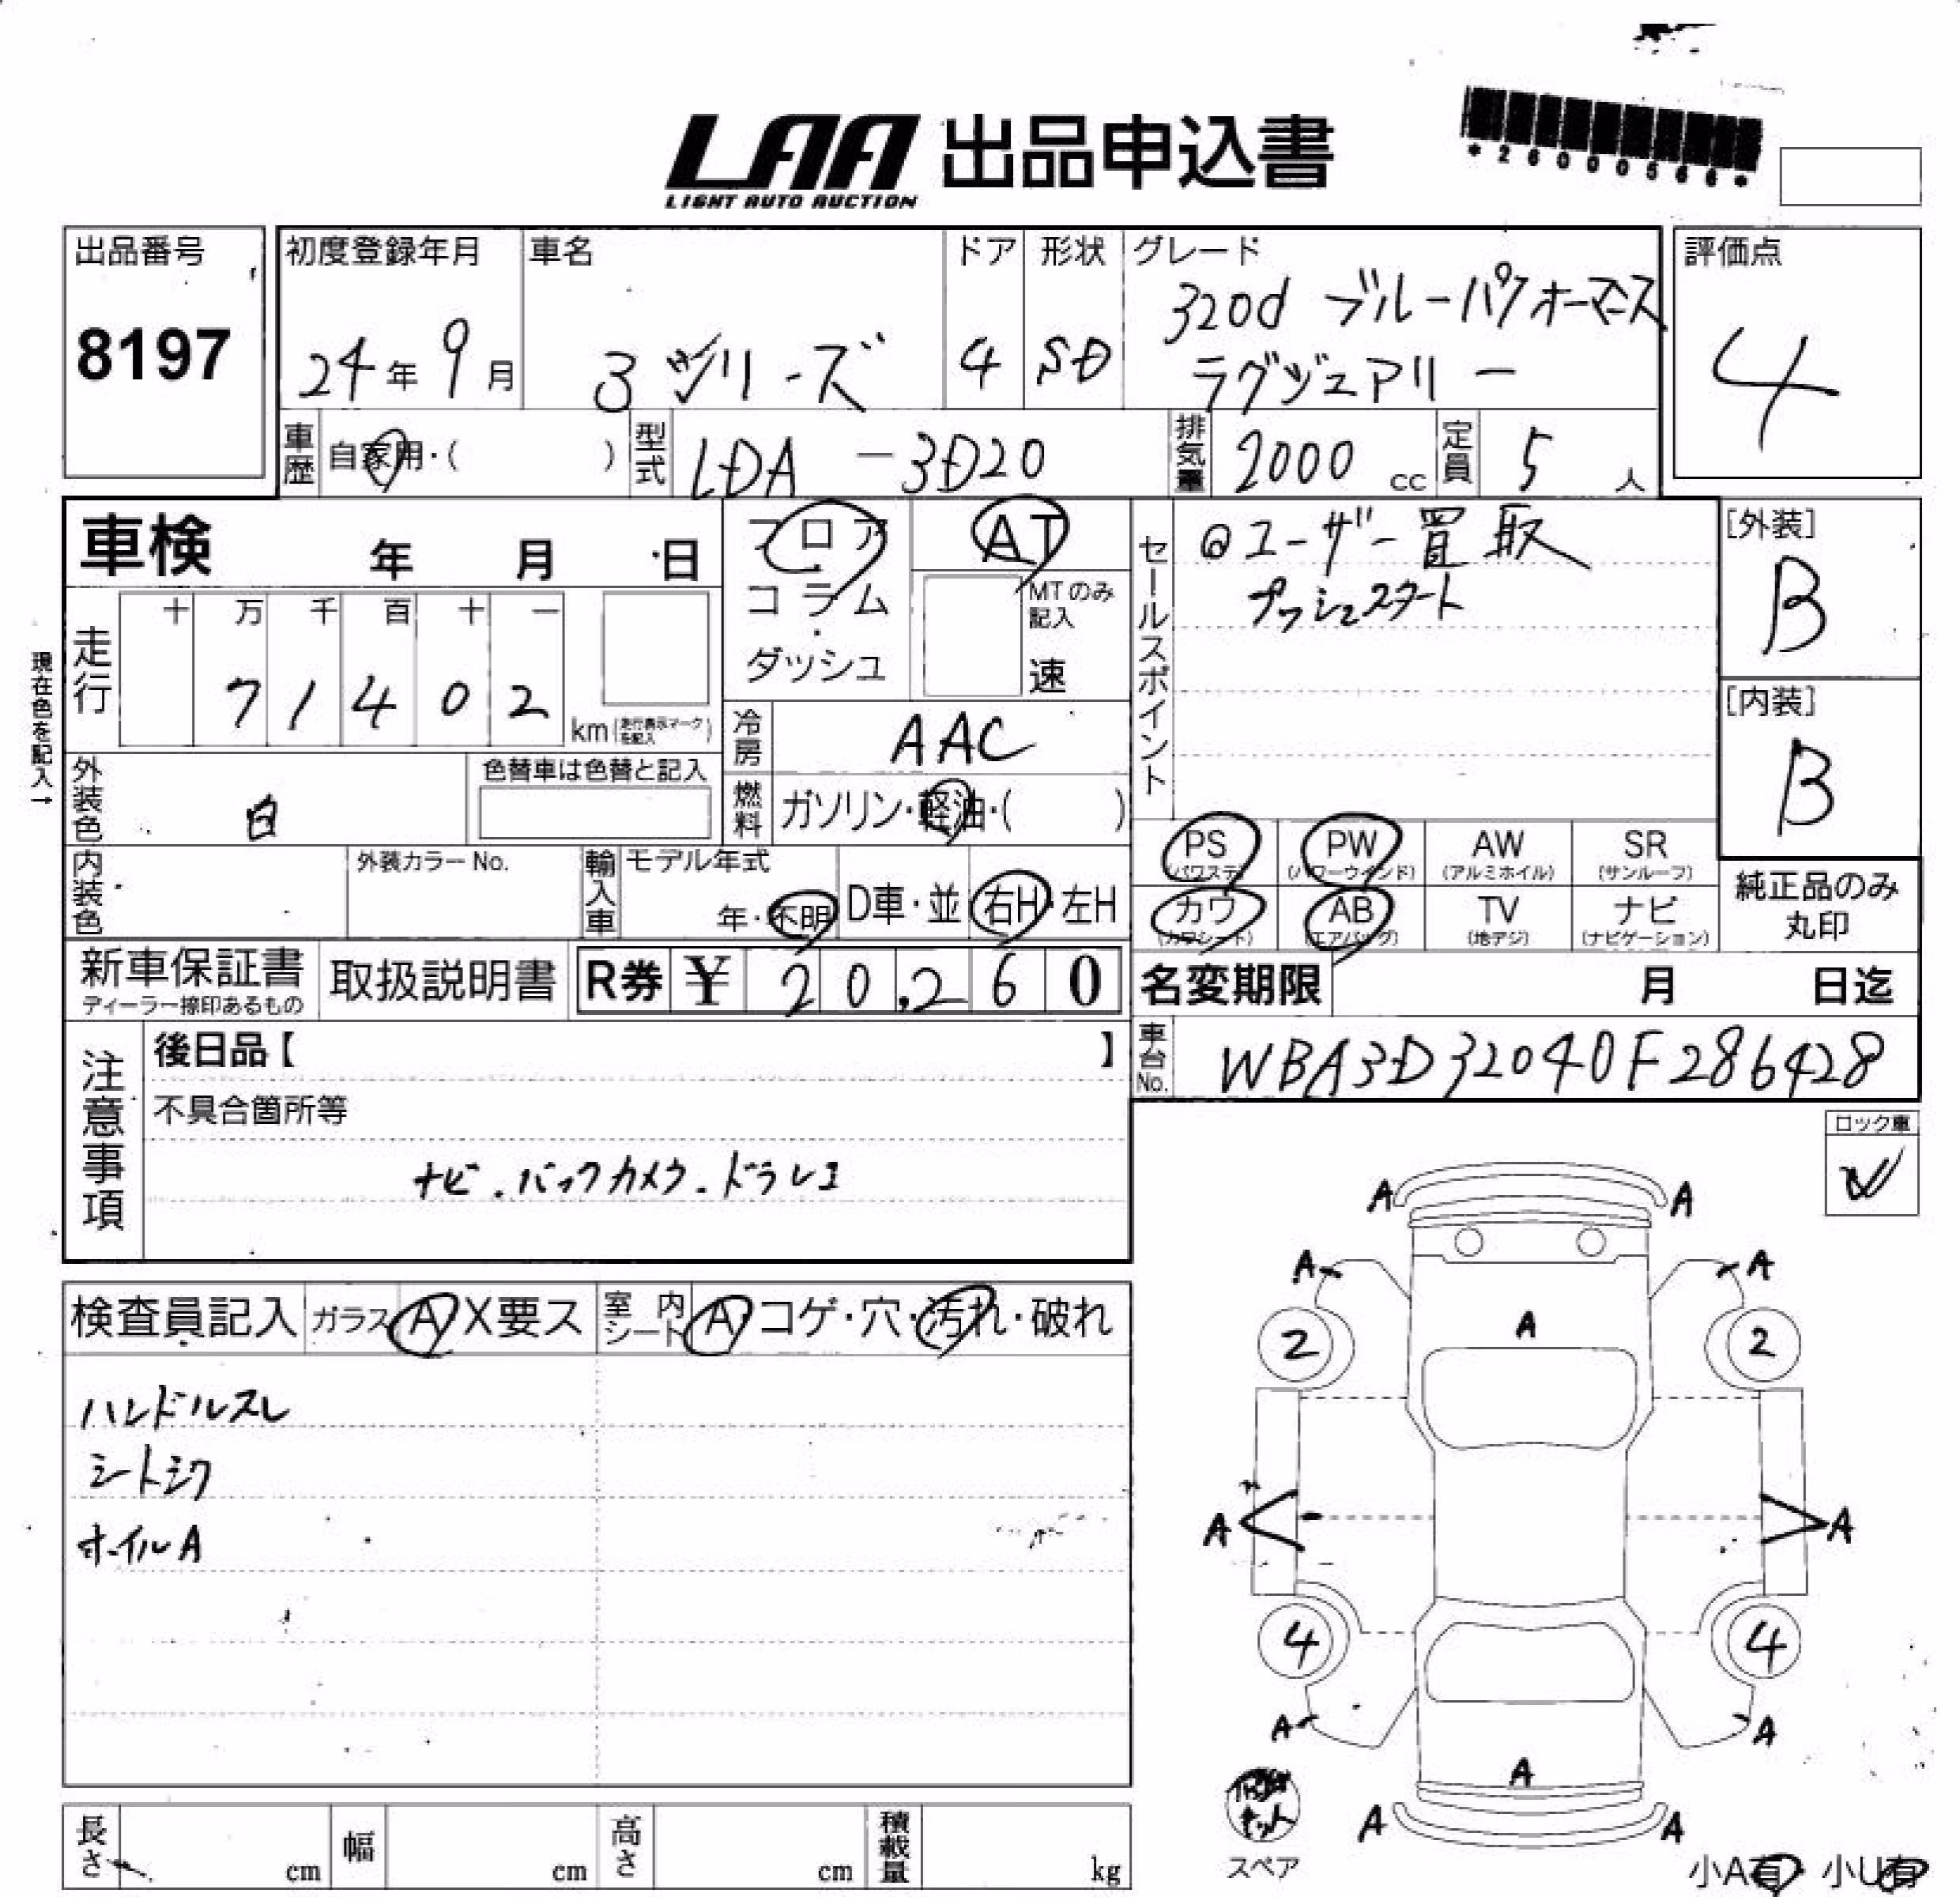 LAA 出品申込書
LIGHT AUTO AUCTION
*26000566*
出品番号
8197
初度登録年月
24年 9月
車名
3 シリーズ
ドア
4
形状
SD
グレード
320d ブルーパフォーマンス
ラグジュアリー
評価点
4
車歴 自家用・( )
型式 LDA - 3D20
排気量 2000 cc
定員 5 人
車検 年 月 日
フロア
コラム
・
ダッシュ
AT
MTのみ
記入
速
セールスポイント
@ユーザー買取
プッシュスタート
[外装]
B
[内装]
B
現在色を記入→
走行
十 万 千 百 十 一
7 1 4 0 2 km (走行表示マークを記入)
冷房 AAC
外装色 白
色替車は色替と記入
燃料 ガソリン・軽油・( )
内装色
外装カラーNo.
輸入車
モデル年式
年・不明
D車・並
右H・左H
PS (パワステ)
PW (パワーウインド)
AW (アルミホイル)
SR (サンルーフ)
カワ (カワシート)
AB (エアバッグ)
TV (地デジ)
ナビ (ナビゲーション)
純正品のみ
丸印
新車保証書
ディーラー捺印あるもの
取扱説明書
R券 ¥ 20,260
名変期限 月 日迄
車台No. WBA3D32040F286428
注意事項
後日品【 】
不具合箇所等
ナビ.バックカメラ.ドラレコ
ロック車
検査員記入
ガラス A X要ス
室内シート A コゲ・穴・汚れ・破れ
ハンドルスレ
シートシワ
ホイルA
A A
A A
2 A 2
A A
4 4
A A
A
A A
キット
スペア
小A有 小U有
長さ cm
幅 cm
高さ cm
積載量 kg